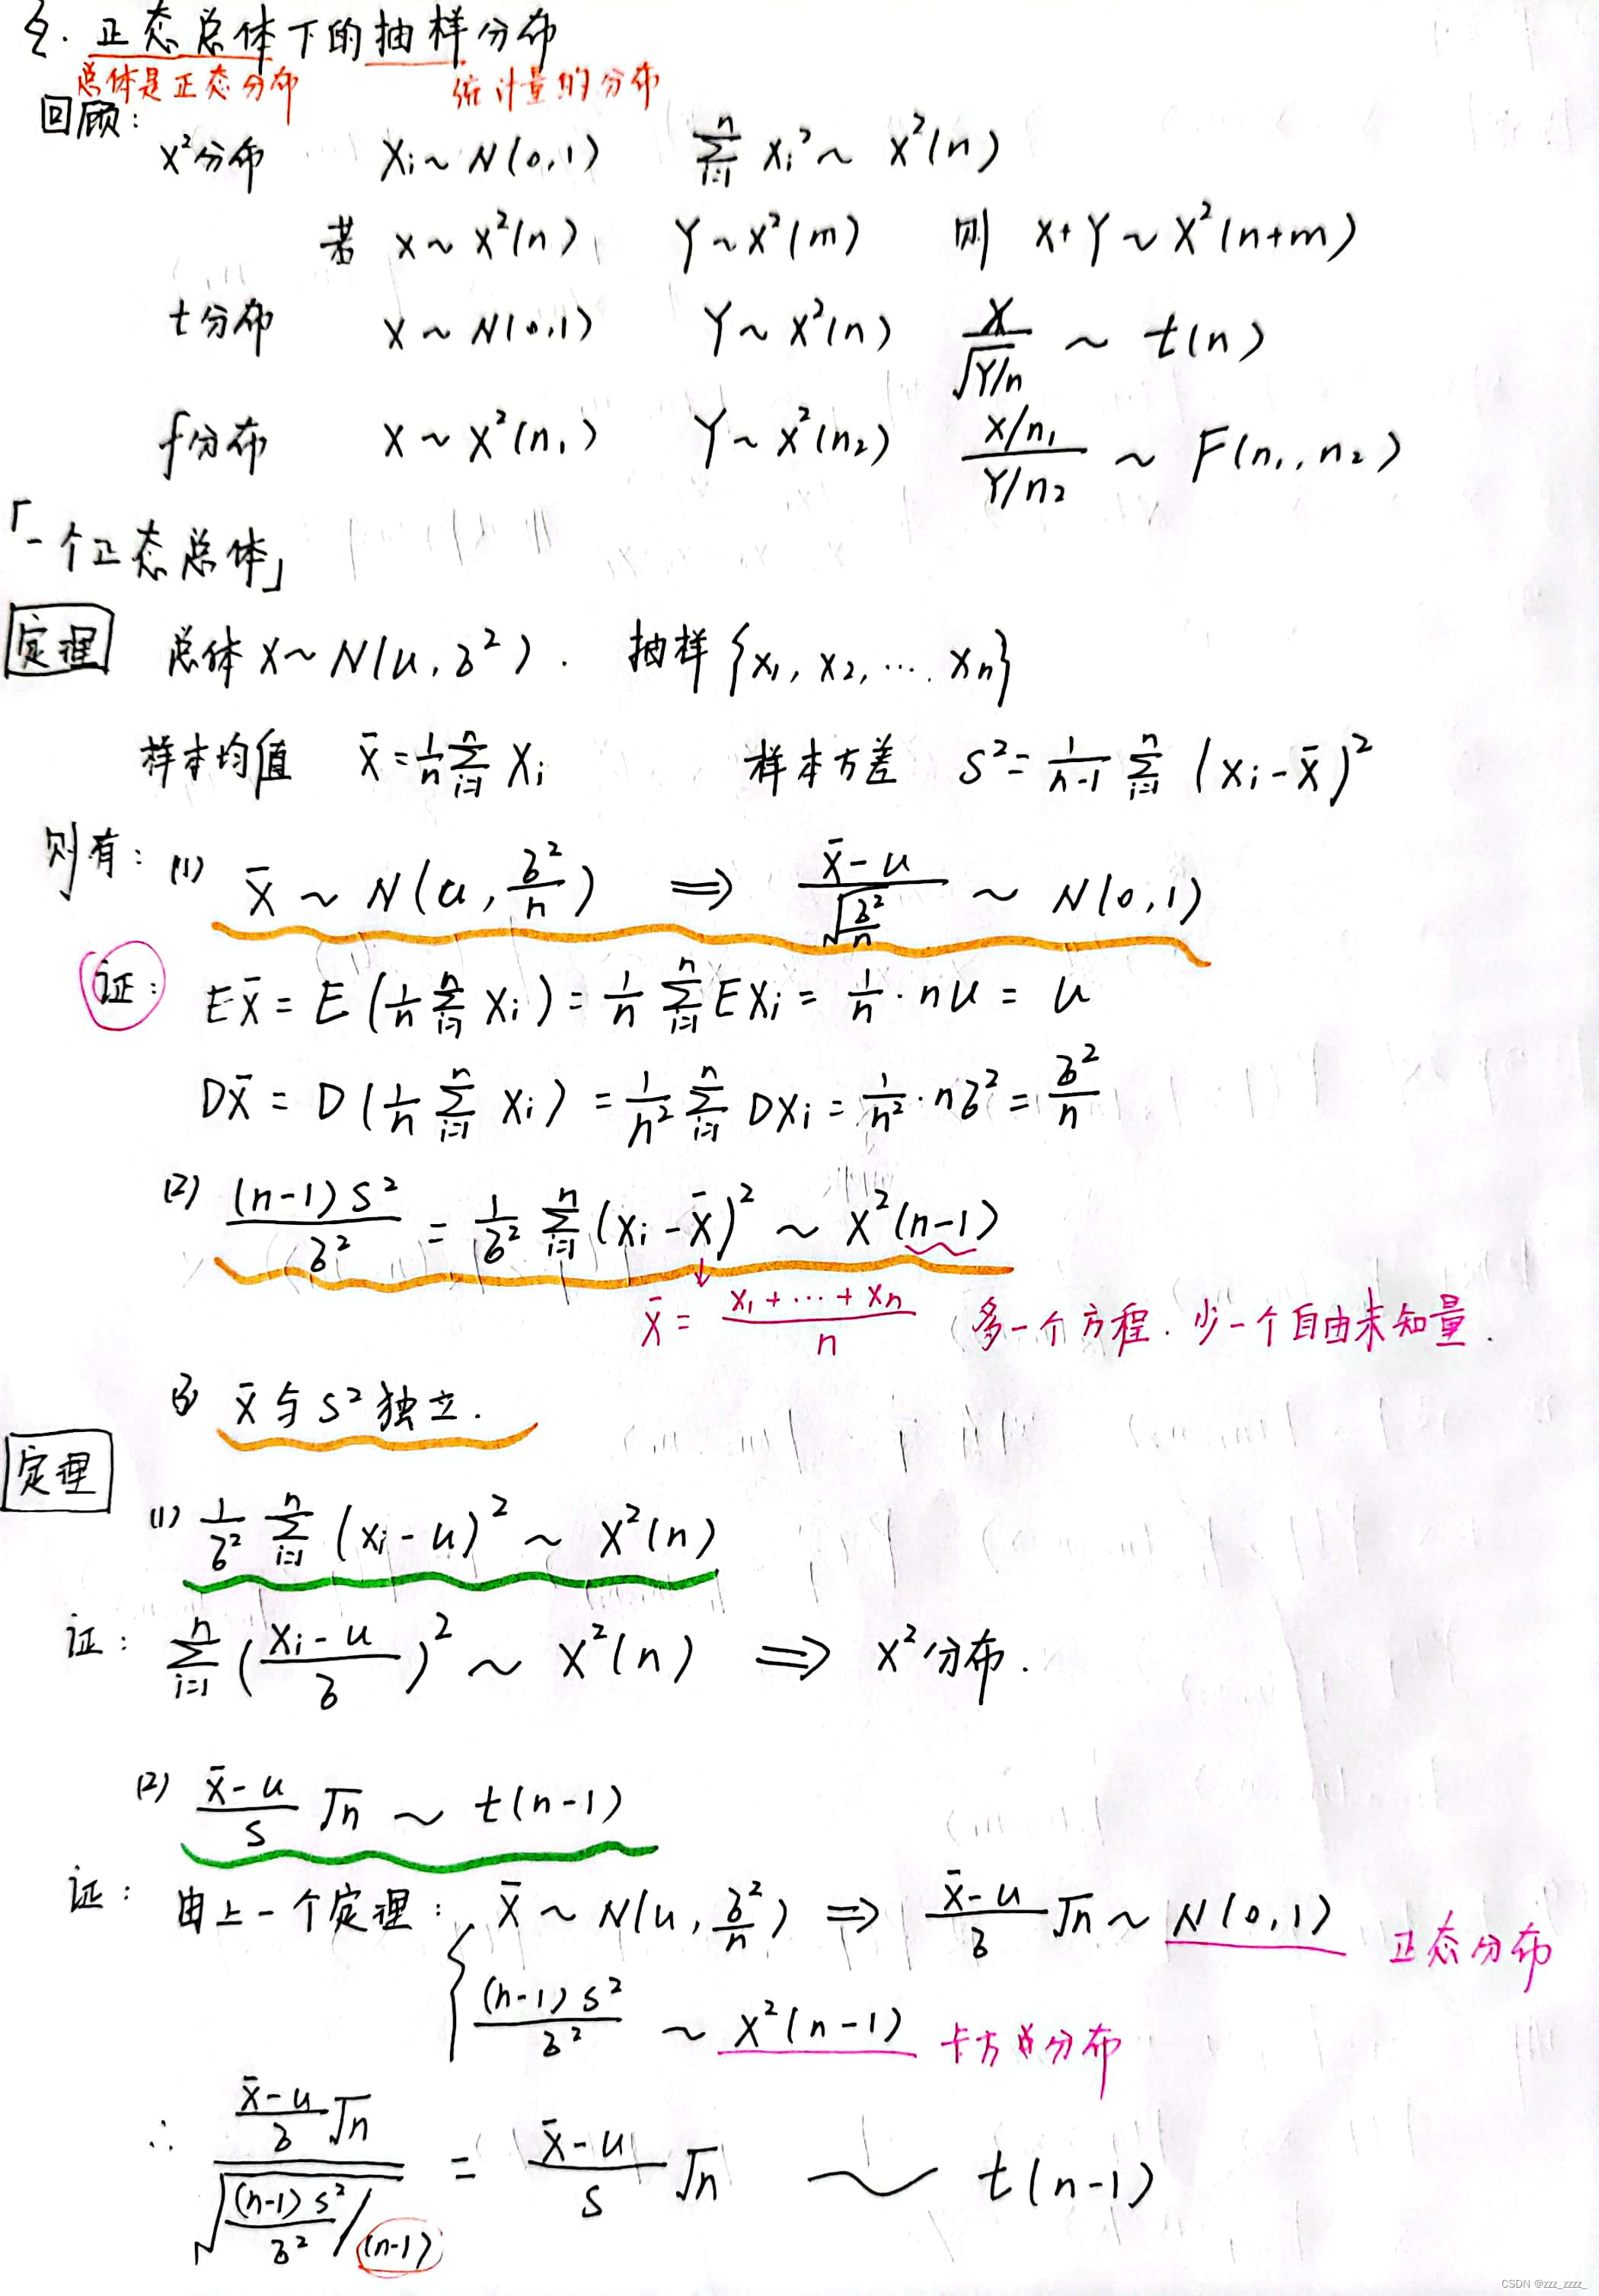 正态总体下的抽样分布
总体是正态分布 统计量的分布
回顾:
X²分布 Xi ~ N(0,1) ∑_{i=1}^{n} Xi² ~ X²(n)
若 X ~ X²(n), Y ~ X²(m) 则 X+Y ~ X²(n+m)
t分布 X ~ N(0,1) Y ~ X²(n) X/√(Y/n) ~ t(n)
f分布 X ~ X²(n₁) Y ~ X²(n₂) (X/n₁)/(Y/n₂) ~ F(n₁,n₂)
「一个正态总体」
定理 总体 X ~ N(u, σ²). 抽样 {x₁, x₂, … xn}
样本均值 x̄ = 1/n ∑_{i=1}^{n} Xi 样本方差 S² = 1/(n-1) ∑_{i=1}^{n} (Xi - x̄)²
则有: (1) x̄ ~ N(u, σ²/n) ⟹ (x̄-u)/√(σ²/n) ~ N(0,1)
证: Ex̄ = E(1/n ∑_{i=1}^{n} Xi) = 1/n ∑_{i=1}^{n} EXi = 1/n · nu = u
Dx̄ = D(1/n ∑_{i=1}^{n} Xi) = 1/n² ∑_{i=1}^{n} DXi = 1/n² · nσ² = σ²/n
(2) (n-1)S²/σ² = 1/σ² ∑_{i=1}^{n} (Xi - x̄)² ~ X²(n-1)
x̄ = (x₁+⋯+xn)/n 多一个方程. 少一个自由未知量.
(3) x̄与S²独立.
定理
(1) 1/σ² ∑_{i=1}^{n} (Xi - u)² ~ X²(n)
证: ∑_{i=1}^{n} ((Xi-u)/σ)² ~ X²(n) ⟹ X²分布.
(2) (x̄-u)/S √n ~ t(n-1)
证: 由上一个定理: x̄ ~ N(u, σ²/n) ⟹ (x̄-u)/σ √n ~ N(0,1) 正态分布
(n-1)S²/σ² ~ X²(n-1) 卡方分布
∴ ((x̄-u)/σ √n)/√((n-1)S²/σ²/(n-1)) = (x̄-u)/S √n ~ t(n-1)
CSDN @zzz_zzzz_